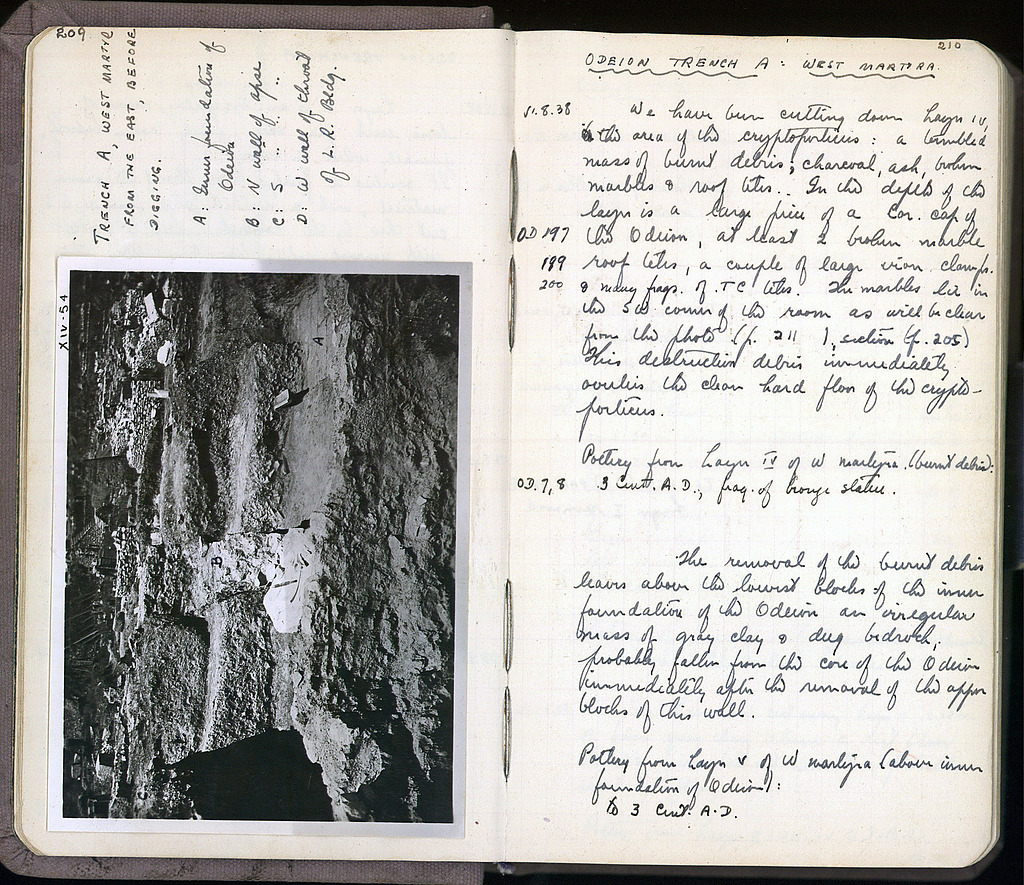 209
TRENCH A, WEST MARTYR
FROM THE EAST, BEFORE
DIGGING.
A: Inner foundation of
Odeion
B: N wall of apse
C: S " " "
D: W wall of throat
of L.R. Bldg.
XIV-54
A
B
210
ODEION TRENCH A: WEST MARTYRA.
We have been cutting down Layer IV,
in the area of the cryptoporticus: a tumbled
mass of burnt debris; charcoal, ash, broken
marbles & roof tiles. In the depth of the
layer is a large piece of a Cor. cap. of
OD 197 the Odeion, at least 2 broken marble
199 roof tiles, a couple of large iron clamps.
200 & many frags. of TC tiles. The marbles lie in
the SW corner of the room as will be clear
from the photo (p. 211 ), section (p. 205)
This destruction debris immediately
overlies the clean hard floor of the crypto-
porticus.
Pottery from Layer IV of W martyra (burnt debris):
OD.7,8 3 Cent. A.D., frag. of bronze statue.
The removal of the burnt debris
leaves above the lowest blocks of the inner
foundation of the Odeion an irregular
mass of gray clay & dug bedrock,
probably fallen from the core of the Odeion
immediately after the removal of the upper
blocks of this wall.
Pottery from Layer V of W martyra (above inner
foundation of Odeion):
to 3 Cent. A.D.